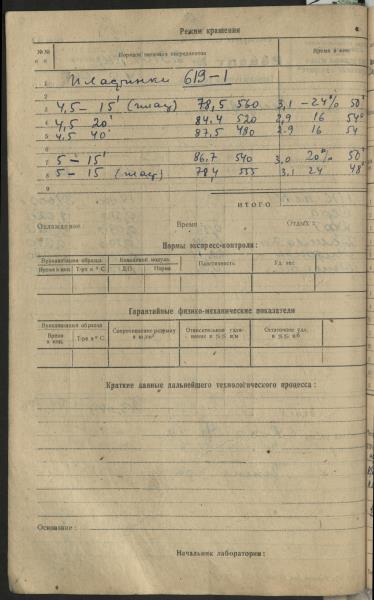 Режим крашения
№№ п п Порядок введения ингредиентов Время в мин.
1 Пластинки 619-1
2
3 4,5 – 15' (плау) 78,5 560 3,1 – 24% 50°
4 4,5 20' 84.4 520 2,9 16 54°
5 4,5 40' 87,5 480 2.9 16 54
6
7 5 – 15' 86,7 540 3,0 20% 50°
8 5 – 15 (плау) 78,4 555 3.1 24 48°
9
ИТОГО
Охлаждение Время: Отдых:
Нормы экспресс-контроля:
Вулканизация образца Кольцевой модуль Пластичность Уд. вес
Время в мин. Т-ра в °С Д/П Норма
Гарантийные физико-механические показатели
Вулканизация образца Сопротивление разрыву в кг/см² Относительное удлинение в %% н/м Остаточное удл. в %% н/б
Время в мин. Т-ра в °С
Краткие данные дальнейшего технологического процесса:
Основание:
Начальник лаборатории: